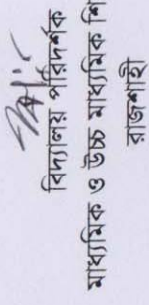 বিদ্যালয় পরিদর্শক
মাধ্যমিক ও উচ্চ মাধ্যমিক শি
রাজশাহী